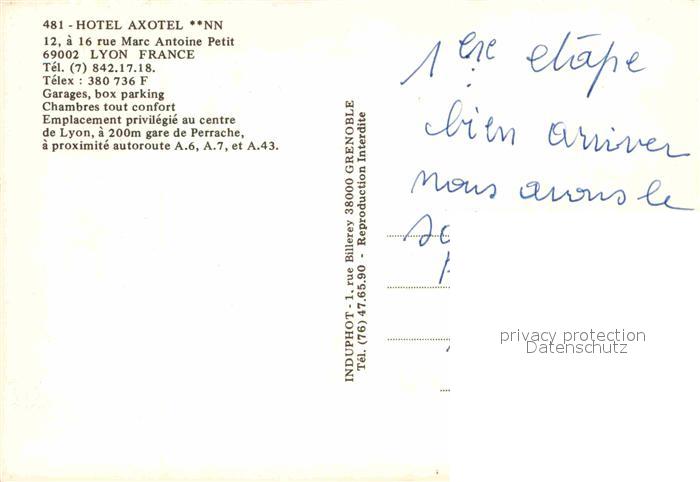 481 - HOTEL AXOTEL **NN
12, à 16 rue Marc Antoine Petit
69002 LYON FRANCE
Tél. (7) 842.17.18.
Télex : 380 736 F
Garages, box parking
Chambres tout confort
Emplacement privilégié au centre
de Lyon, à 200m gare de Perrache,
à proximité autoroute A.6, A.7, et A.43.
INDUPHOT - 1, rue Billerey 38000 GRENOBLE
Tél. (76) 47.65.90 - Reproduction Interdite
1ere etape
bien arriver
nous avons le
privacy protection
Datenschutz